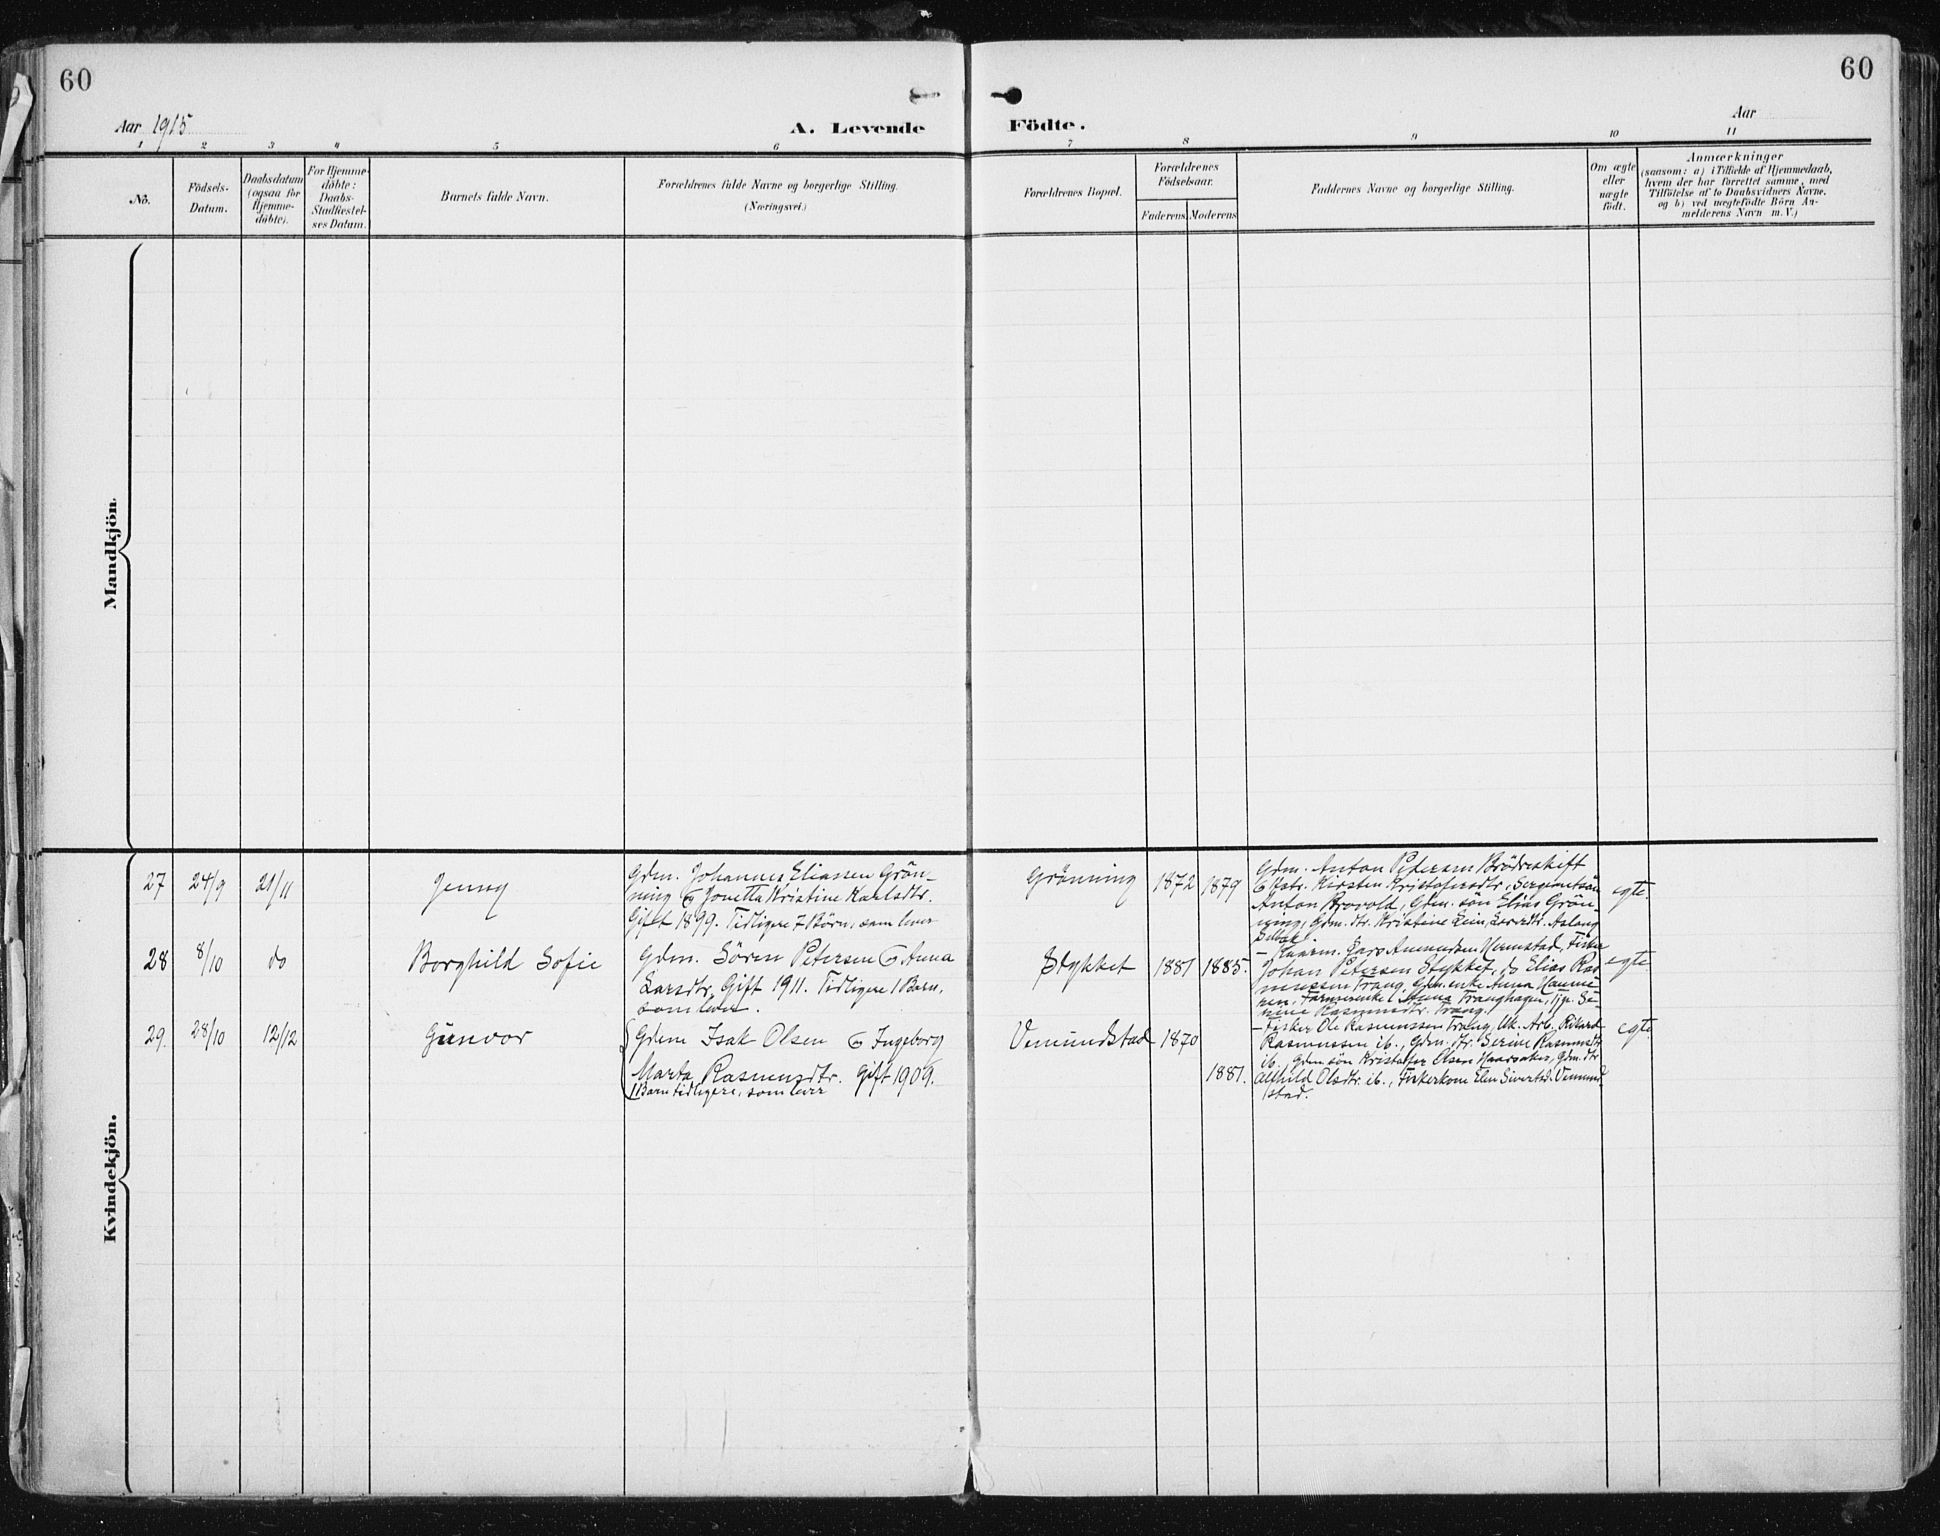 60
60
Aar 1915
A. Levende Födte.
Aar
1 2 3 4 5 6 7 8 9 10 11
No.
Födsels-
Datum.
Daabsdatum
(ogsaa for
Hjemme-
döbte).
For Hjemme-
döbte:
Daabs-
Stadfæstel-
ses Datum.
Barnets fulde Navn.
Forældrenes fulde Navne og borgerlige Stilling.
(Næringsvei.)
Forældrenes Bopæl.
Forældrenes
Födselsaar.
Faderens
Moderens
Faddernes Navne og borgerlige Stilling.
Om ægte
eller
uægte
födt.
Anmærkninger
(saasom: a) i Tilfælde af Hjemmedaab,
hvem der har forrettet samme, med
Tilföielse af to Daabsvidners Navne.
og b) ved uægtefödte Börn An-
melderens Navn m. V.)
Mandkjön.
Kvindekjön.
27 24/9 21/11 Jenny
Gdm. Johannes Eliassen Grön-
ning & Jonetta Kristine Karlsdtr.
Gift 1899. Tidligere 7 Börn, som lever
Grönning 1872 1879
Gdm. Anton Petersen Brödreskift
& Hstr. Kirsten Kristofersdtr, Sergeantsön
Anton Brovold, Gdm. sön Elias Grön-
ning, Gdm. dtr. Kristine Lein, Aslaug
Selbek
egte.
28 8/10 do Borghild Sofie
Gdm. Sören Petersen & Anna
Larsdtr. Gift 1911. Tidligere 1 Barn,
som lever.
Stykket 1881 1885.
Lars Amundsen Hermstad, Fisker
Johan Petersen Stykket, do Elias Ras-
mussen Trang, Gdm. enke Anna
Anna Tranghagen, Tjp. Se-
rine Rasmusdtr. Trang.
egte
29. 28/10 12/12 Gunvor
Gdm Isak Olsen & Ingeborg
Marta Rasmusdtr. Gift 1909.
1 Barn tidligere, som lever
Vemundstad 1870
1881.
– Fisker Ole Rasmussen Trang, Uk. Arb. Rikard
Rasmussen ib., Gdm. dtr. Serine Rasmusdtr.
ib. Gdm sön Kristofer Olsen Haarsaker, Gdm. dtr
Alfhild Olsdtr. ib., Fiskerkone Elen Sivertsd. Vemund-
stad.
egte